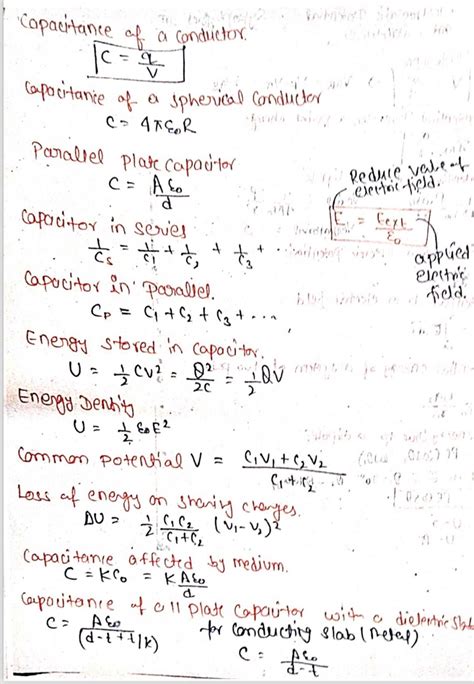 Capacitance of a conductor.
C = q/V
Capacitance of a spherical conductor
C = 4πε₀R
Parallel plate capacitor
C = Aε₀/d
Reduce value of
electric field.
E = Eext/ε₀
applied
electric
field.
Capacitor in series
1/Cs = 1/C1 + 1/C2 + 1/C3 + ...
Capacitor in Parallel.
Cp = C1 + C2 + C3 + ...
Energy stored in capacitor.
U = 1/2 CV² = Q²/2C = 1/2 QV
Energy Density
U = 1/2 ε₀E²
Common potential V = C1V1 + C2V2 / C1 + C2
Loss of energy on sharing charges.
ΔU = 1/2 C1C2/C1+C2 (V1 - V2)²
Capacitance affected by medium.
C = KC₀ = K Aε₀/d
Capacitance of a || plate capacitor with a dielectric slab
C = Aε₀/(d-t+t/K)
for conducting slab (metal)
C = Aε₀/d-t